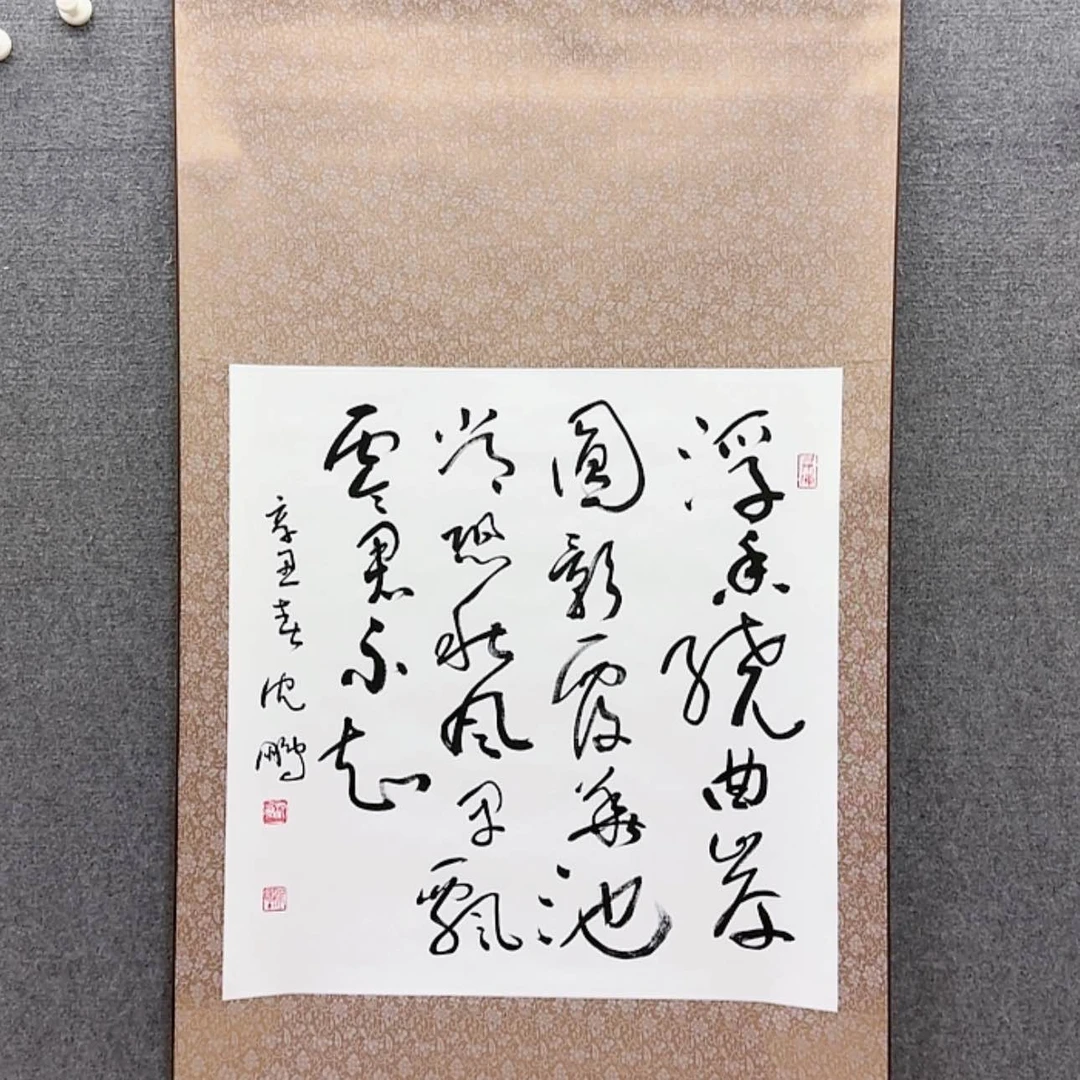 浮香繞曲岸
圓影覆華池
常恐秋風早飄
零君不知
辛丑春沈鵬